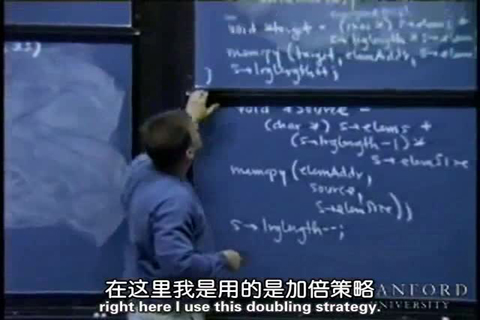 void *target = (char *) s->elems +
s->logLength * s->elemSize
memcpy(target, elemAddr, s->elem
s->logLength++;
}
void *source =
(char *) s->elems +
(s->logLength-1) *
s->elemSize
memcpy(elemAddr,
source,
s->elemSize);
s->logLength--;
在这里我是用的是加倍策略
right here I use this doubling strategy.
STANFORD
UNIVERSITY